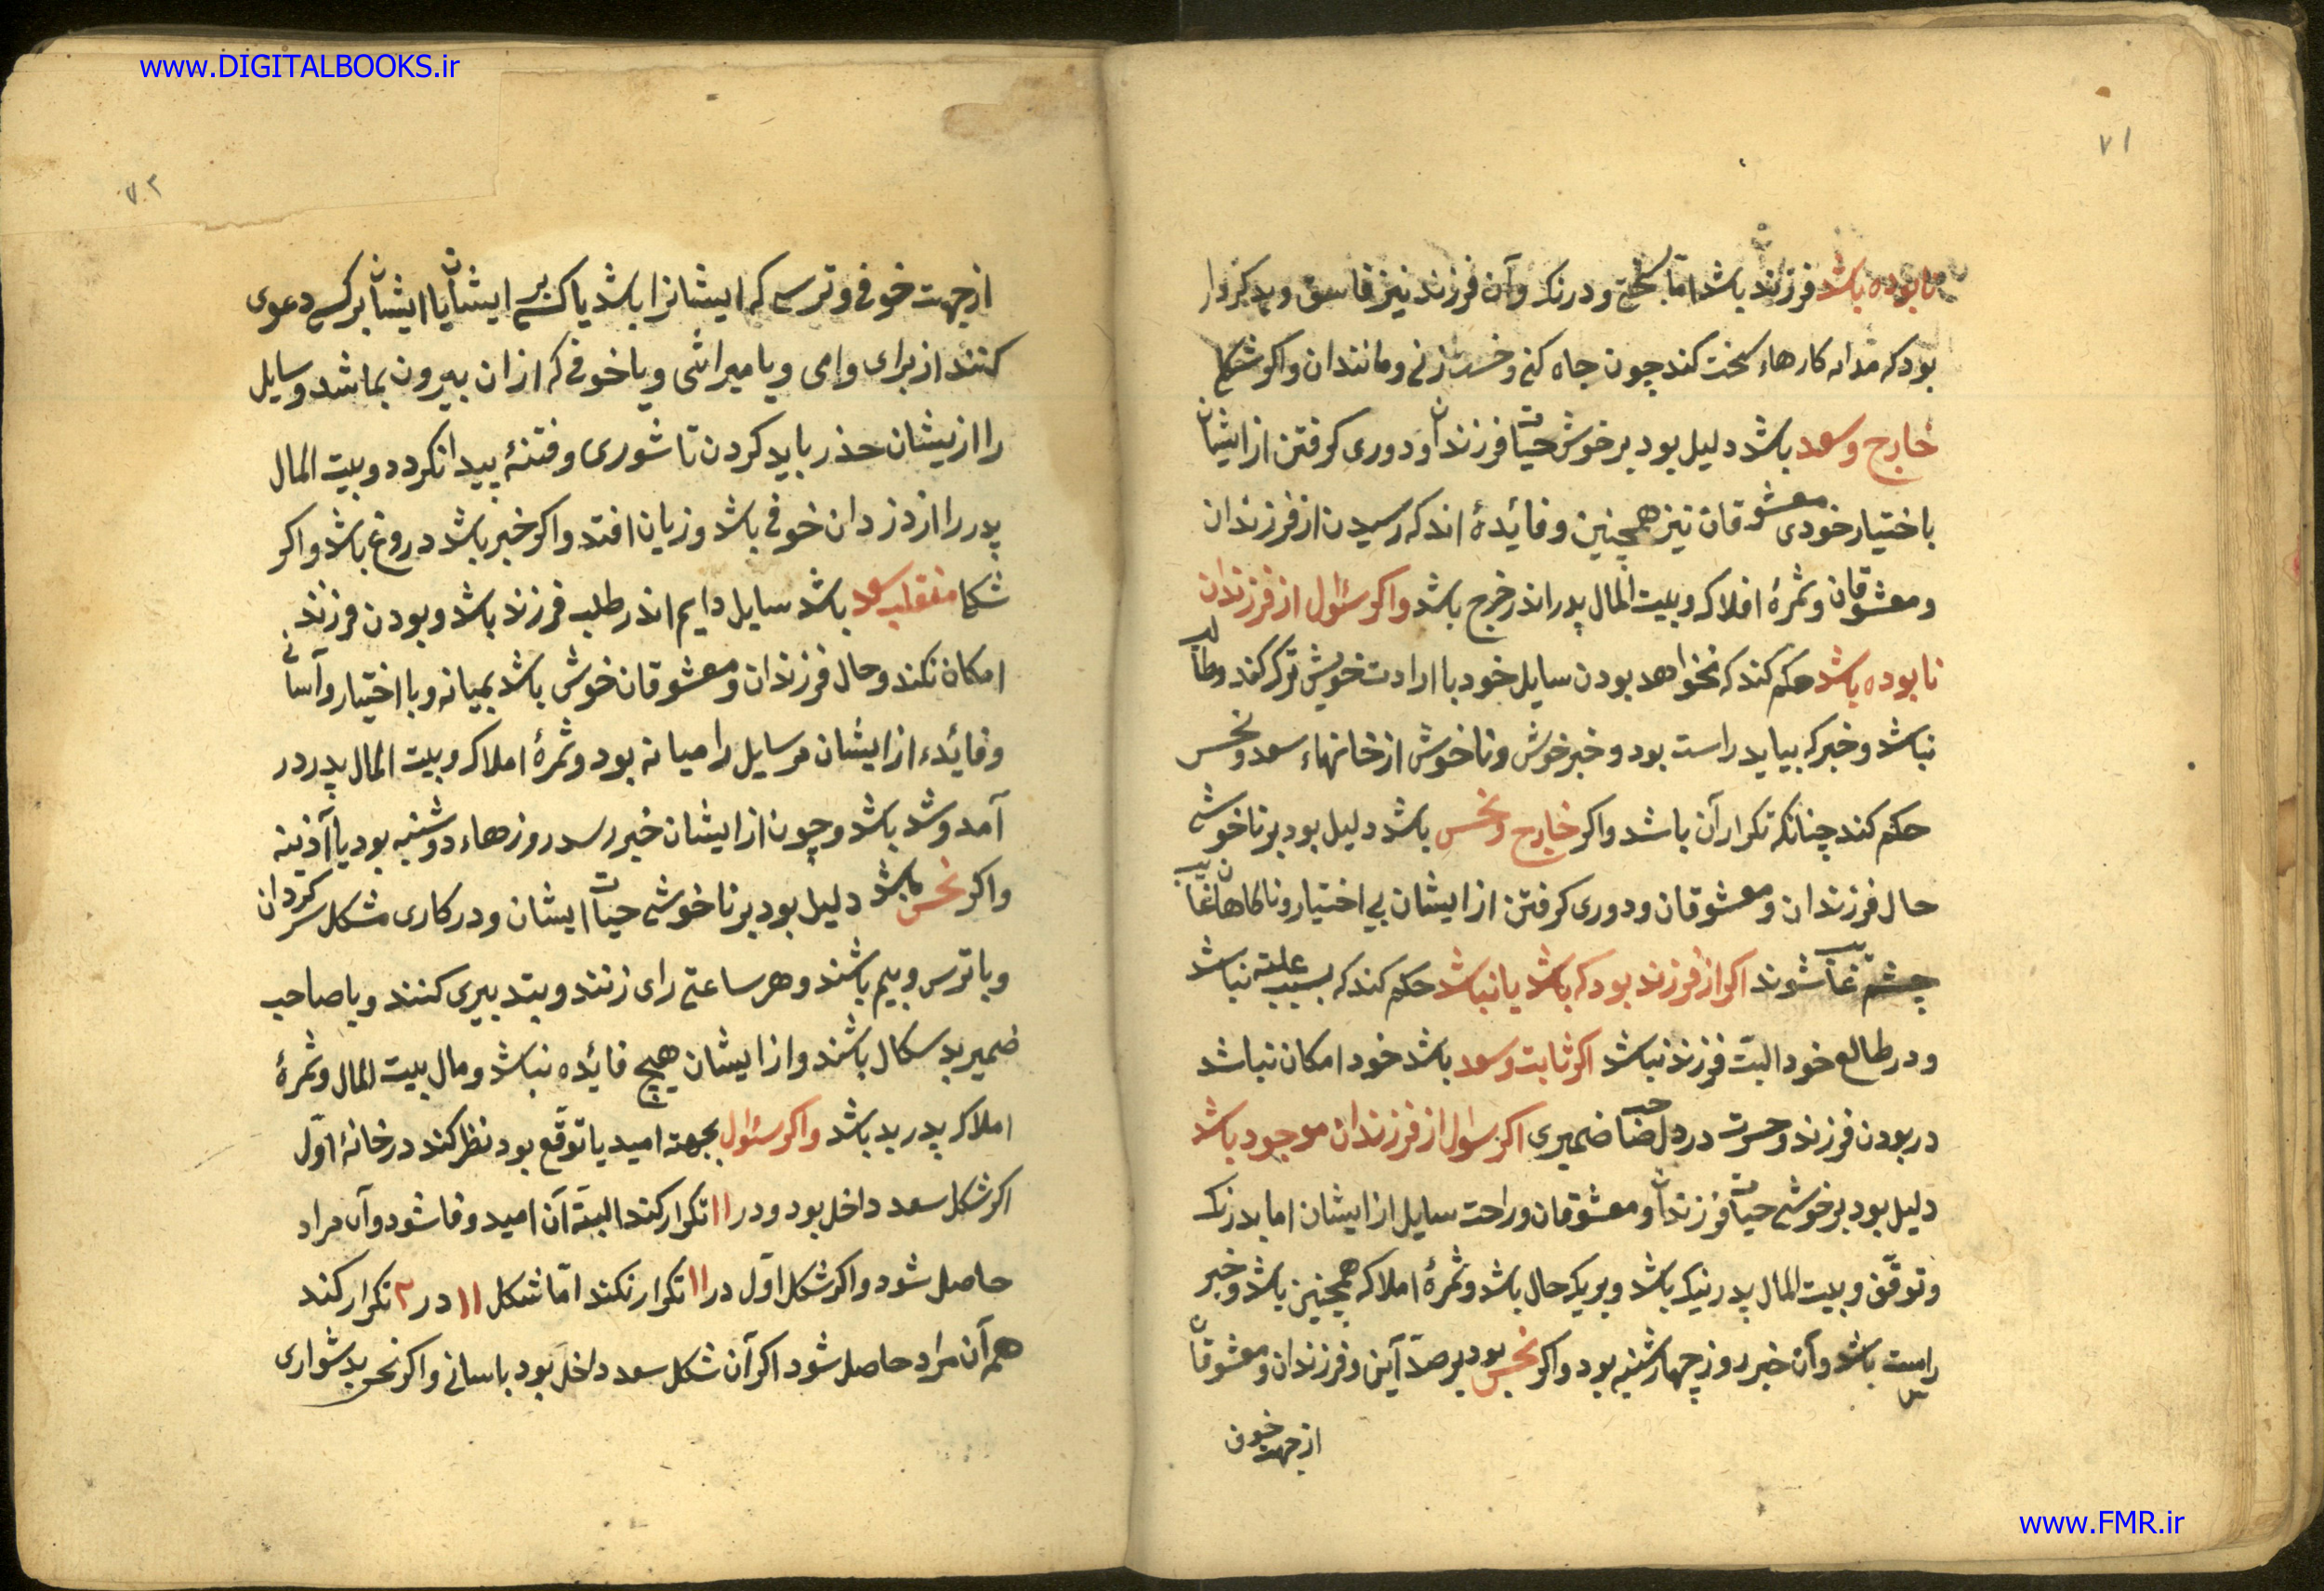 www.DIGITALBOOKS.ir
۷۱
نا بوده باشد فرزند باشد اما بسختی و درنک و آن فرزند نیز فاسق و بدکردار
بود که کارهاء سخت کند چون چاه کنی و خشت زنی و مانند ان و اکر شکل
خارج و سعد باشد دلیل بود بر خوش حیات فرزندان و دوری کرفتن از ایشان
باختیار خودی معشوقان نیز همچنین و فائدهٔ اندک رسیدن از فرزندان
و معشوقان و ثمرهٔ افلاک و بیت المال پدر اندر خرج باشد واکر سئوال از فرزندان
نا بوده باشد حکم کند که نخواهد بودن سایل خود با ارادت خویش ترک کند و طالب
نباشد و خبر که بیاید راست بود و خبر خوش و ناخوش از خانهاء سعد و نحس
حکم کند چنانکه تکرار آن باشد واکر خارج و نحس باشد دلیل بود بر ناخوشی
حال فرزندان و معشوقان و دوری کرفتن از ایشان بی اختیار و ناکاهان غایب
چشم غایب شوند اکر از فرزند بود که باشد یا نباشد حکم کند که بسبب علتی نباشد
و در طالع خود البت فرزند نباشد اکر ثابت و سعد باشد خود امکان نباشد
در بودن فرزند و حسرت در دل صاحب ضمیری اکر سئوال از فرزندان موجود باشد
دلیل بود بر خوشی حیات فرزندان و معشوقان و راحت سایل از ایشان اما بدرنک
و توقف و بیت المال پدر نیک باشد و بر یک حال باشد و ثمرهٔ املاک همچنین باشد و خبر
راست باشد و آن خبر روز چهارشنبه بود و اکر نحس بود بر ضد آین و فرزندان و معشوقان
از جهت خوف
۷۲
از جهت خوفی و ترسی که ایشانرا باشد یا کسی بر ایشان یا ایشان بر کسی دعوی
کنند از برای وامی و یا میراثی و یا خوفی که از ان بیرون باشد و سایل
را ازیشان حذر باید کردن تا شوری و فتنهٔ پیدا نکردد و بیت المال
پدر را از دزدان خوفی باشد و زیان افتد واکر خبر باشد دروغ باشد واکر
شکل منقلب سعد باشد سایل دایم اندر طلب فرزند باشد و بودن فرزند
امکان نکند و حال فرزندان و معشوقان خوش باشد بمیانه و با اختیار و آسانی
و فائده از ایشان مر سایل را میانه بود و ثمرهٔ املاک و بیت المال پدر در
آمد و شد باشد و چون از ایشان خبر رسد روزهاء دوشنبه بود یا آذینه
واکر نحس باشد دلیل بود بر ناخوشی حیات ایشان و در کاری مشکل سر کردان
و با ترس و بیم باشند و هر ساعتی رای زنند و بتدبیری کنند و با صاحب
ضمیر بد سکال باشند و از ایشان هیچ فائده نباشد و مال بیت المال و ثمرهٔ
املاک پدر بد باشد واکر سئوال بجهة امید یا توقع بود نظر کند در خانهٔ اول
اکر شکل سعد داخل بود و در ۱۱ تکرار کند البته آن امید وفا شود و آن مراد
حاصل شود واکر شکل اول در ۱۱ تکرار نکند اما شکل ۱۱ در ۲ تکرار کند
هم آن مراد حاصل شود اکر آن شکل سعد داخل بود باسانی واکر نحس بدشواری
www.FMR.ir